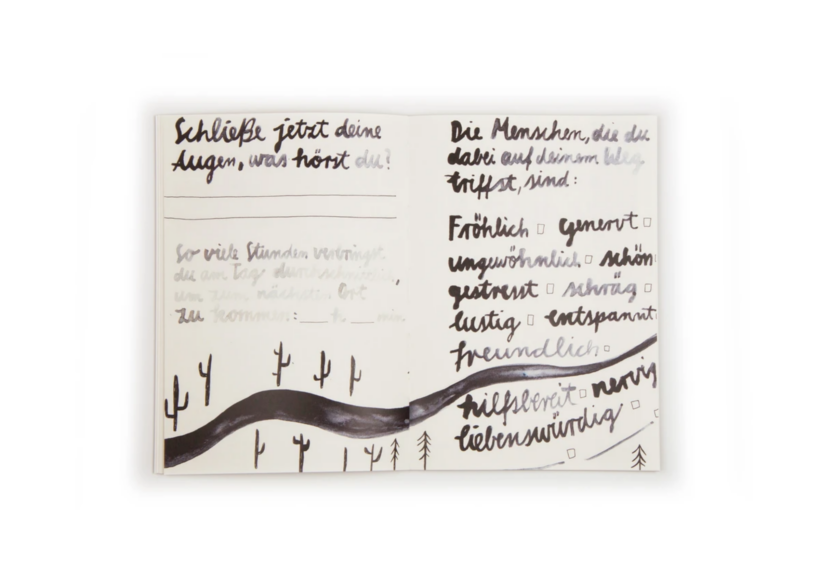 Schließe jetzt deine
Augen, was hörst du?
So viele Stunden verbringst
du am Tag durchschnittlich,
um zum nächsten Ort
zu kommen: ___ h ___ min.
Die Menschen, die du
dabei auf deinem Weg
triffst, sind:
Fröhlich □ genervt □
ungewöhnlich □ schön
gestresst □ schräg □
lustig □ entspannt
freundlich □
hilfsbereit □ nervig
liebenswürdig □